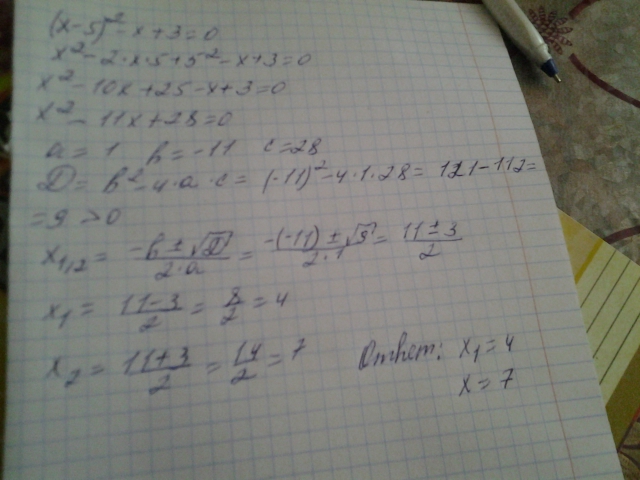 (x-5)² - x + 3 = 0
x² - 2·x·5 + 5² - x + 3 = 0
x² - 10x + 25 - x + 3 = 0
x² - 11x + 28 = 0
a = 1 b = -11 c = 28
D = b² - 4·a·c = (-11)² - 4·1·28 = 121 - 112 =
= 9 > 0
x₁,₂ = (-b ± √D)/(2·a) = (-(-11) ± √9)/(2·1) = (11 ± 3)/2
x₁ = (11-3)/2 = 8/2 = 4
x₂ = (11+3)/2 = 14/2 = 7
Ответ: x₁ = 4
x = 7